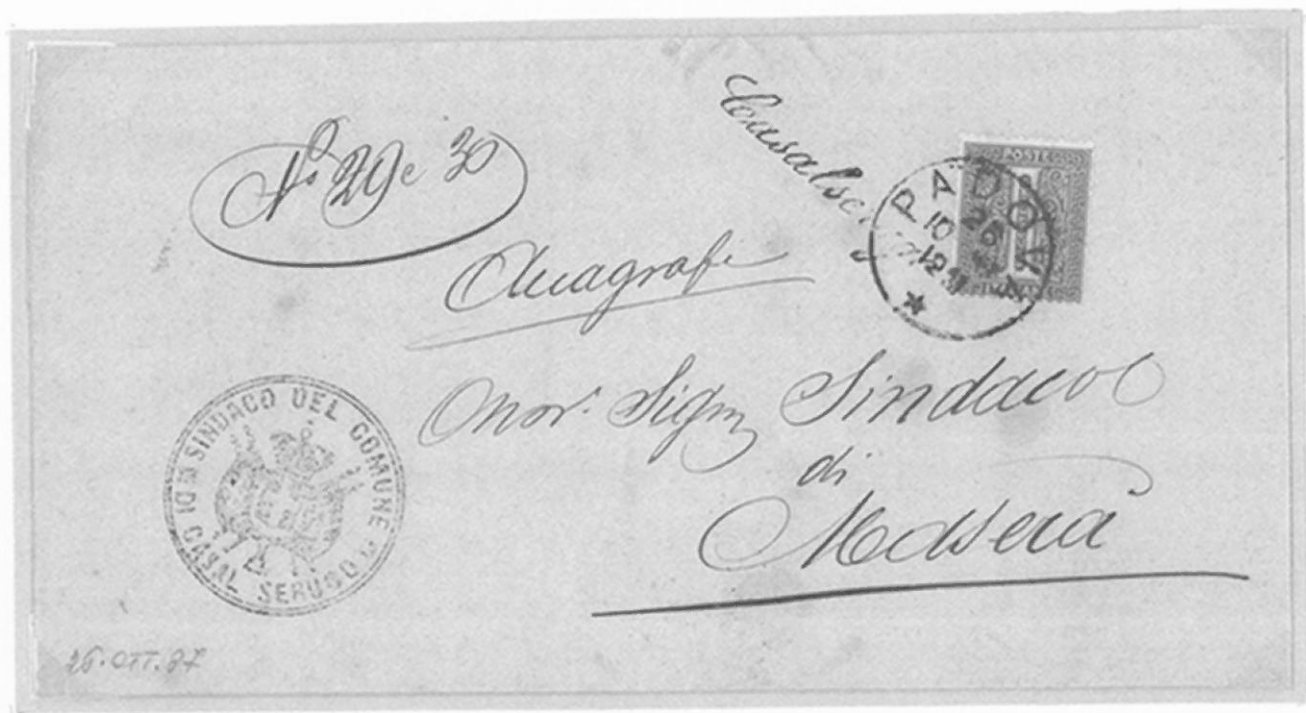 Nº 29 e 30
Casalse
POSTE
PADOVA
10 26
Anagrafe
Onor. Sign Sindaco
di
Maserà
SINDACO DEL COMUNE
DI CASAL SERUGO
26.OTT.87